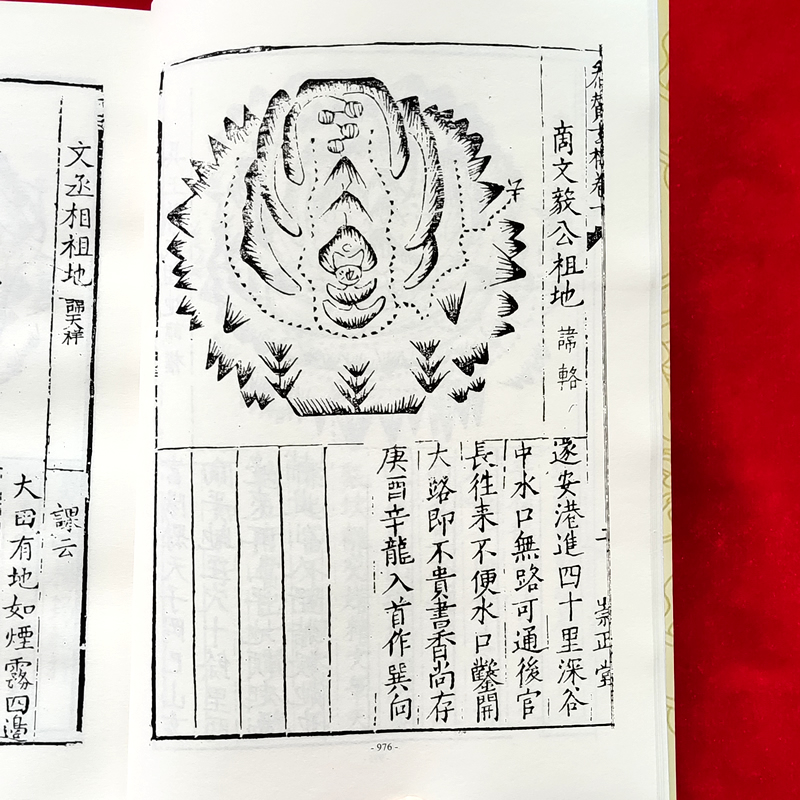 商文毅公祖地 諱輅
遂安港進四十里深谷
中水口無路可通後官
長往来不便水口鑿開
大路即不貴書香尚存
庚酉辛龍入首作巽向
池
崇正堂
- 976 -
文丞相祖地 諱天祥
課云
大田有地如煙霧四邉